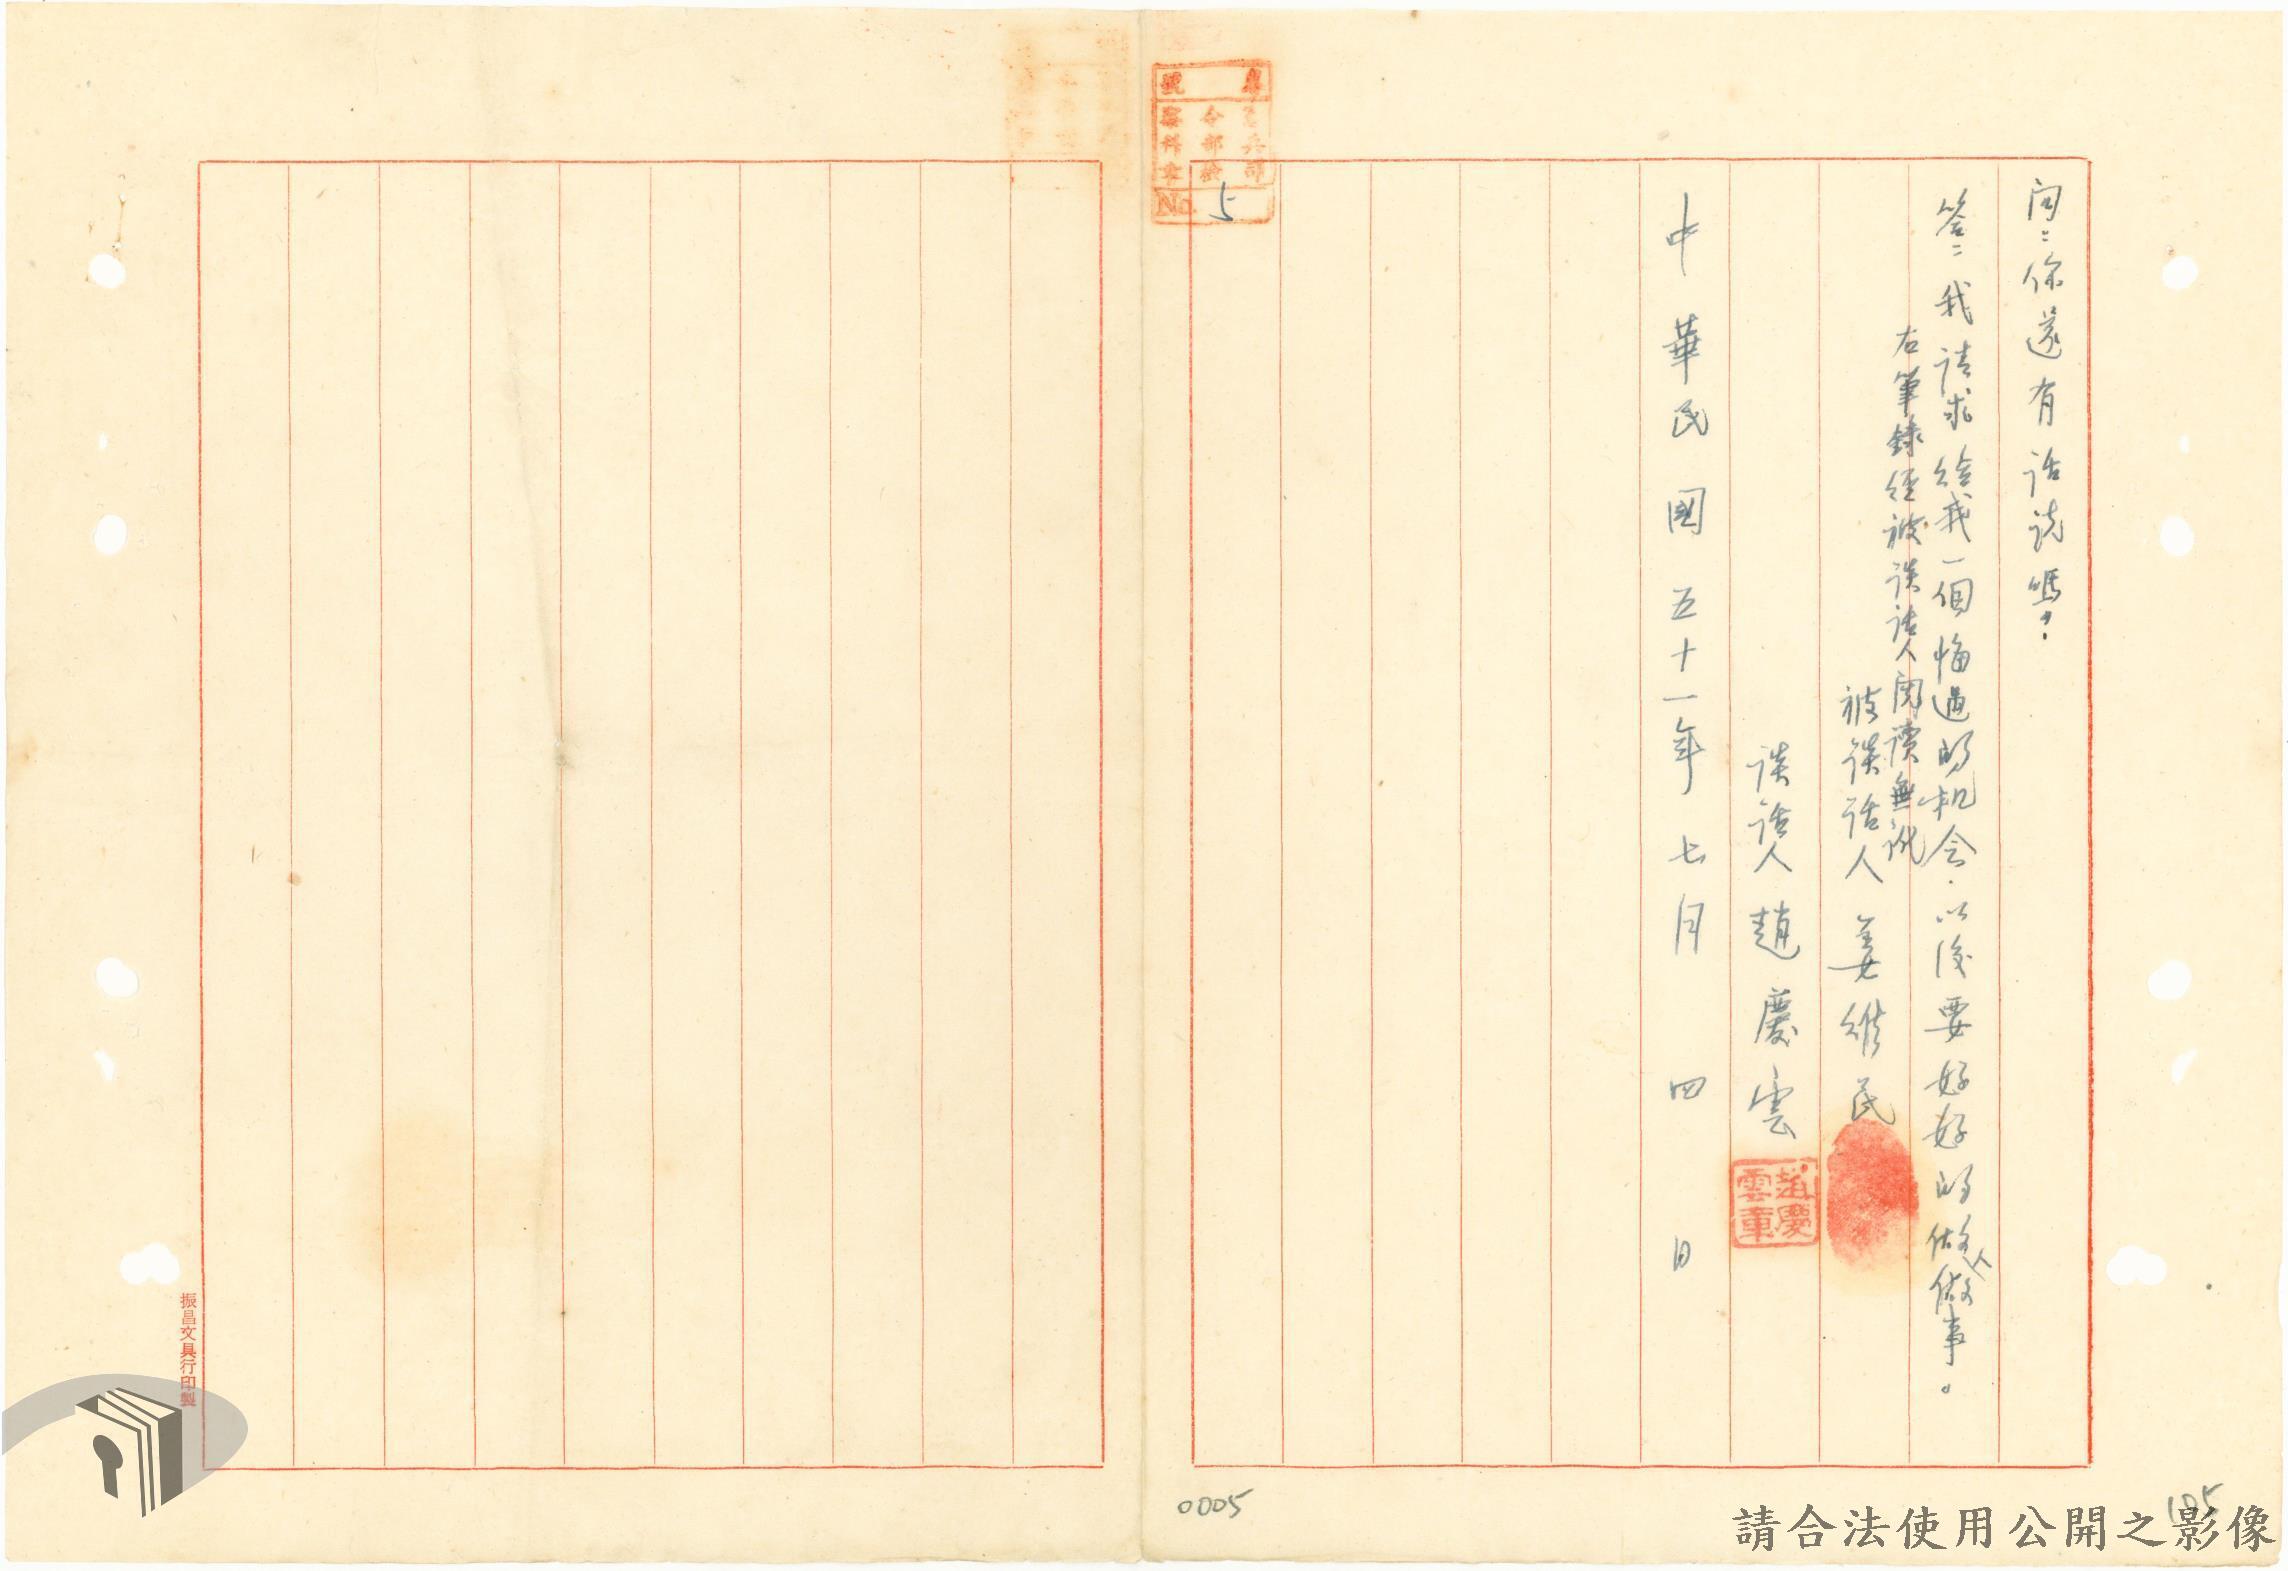 問：你還有話說嗎？
答：我請求給我一個悔過的机会．以後要好好的做人做事。
右筆錄經被談話人閱讀無訛
被談話人 姜維民
談話人 趙慶雲
趙慶雲章
中華民國五十一年七月四日
號
令部檢
No. 5
振昌文具行印製
0005
105
請合法使用公開之影像